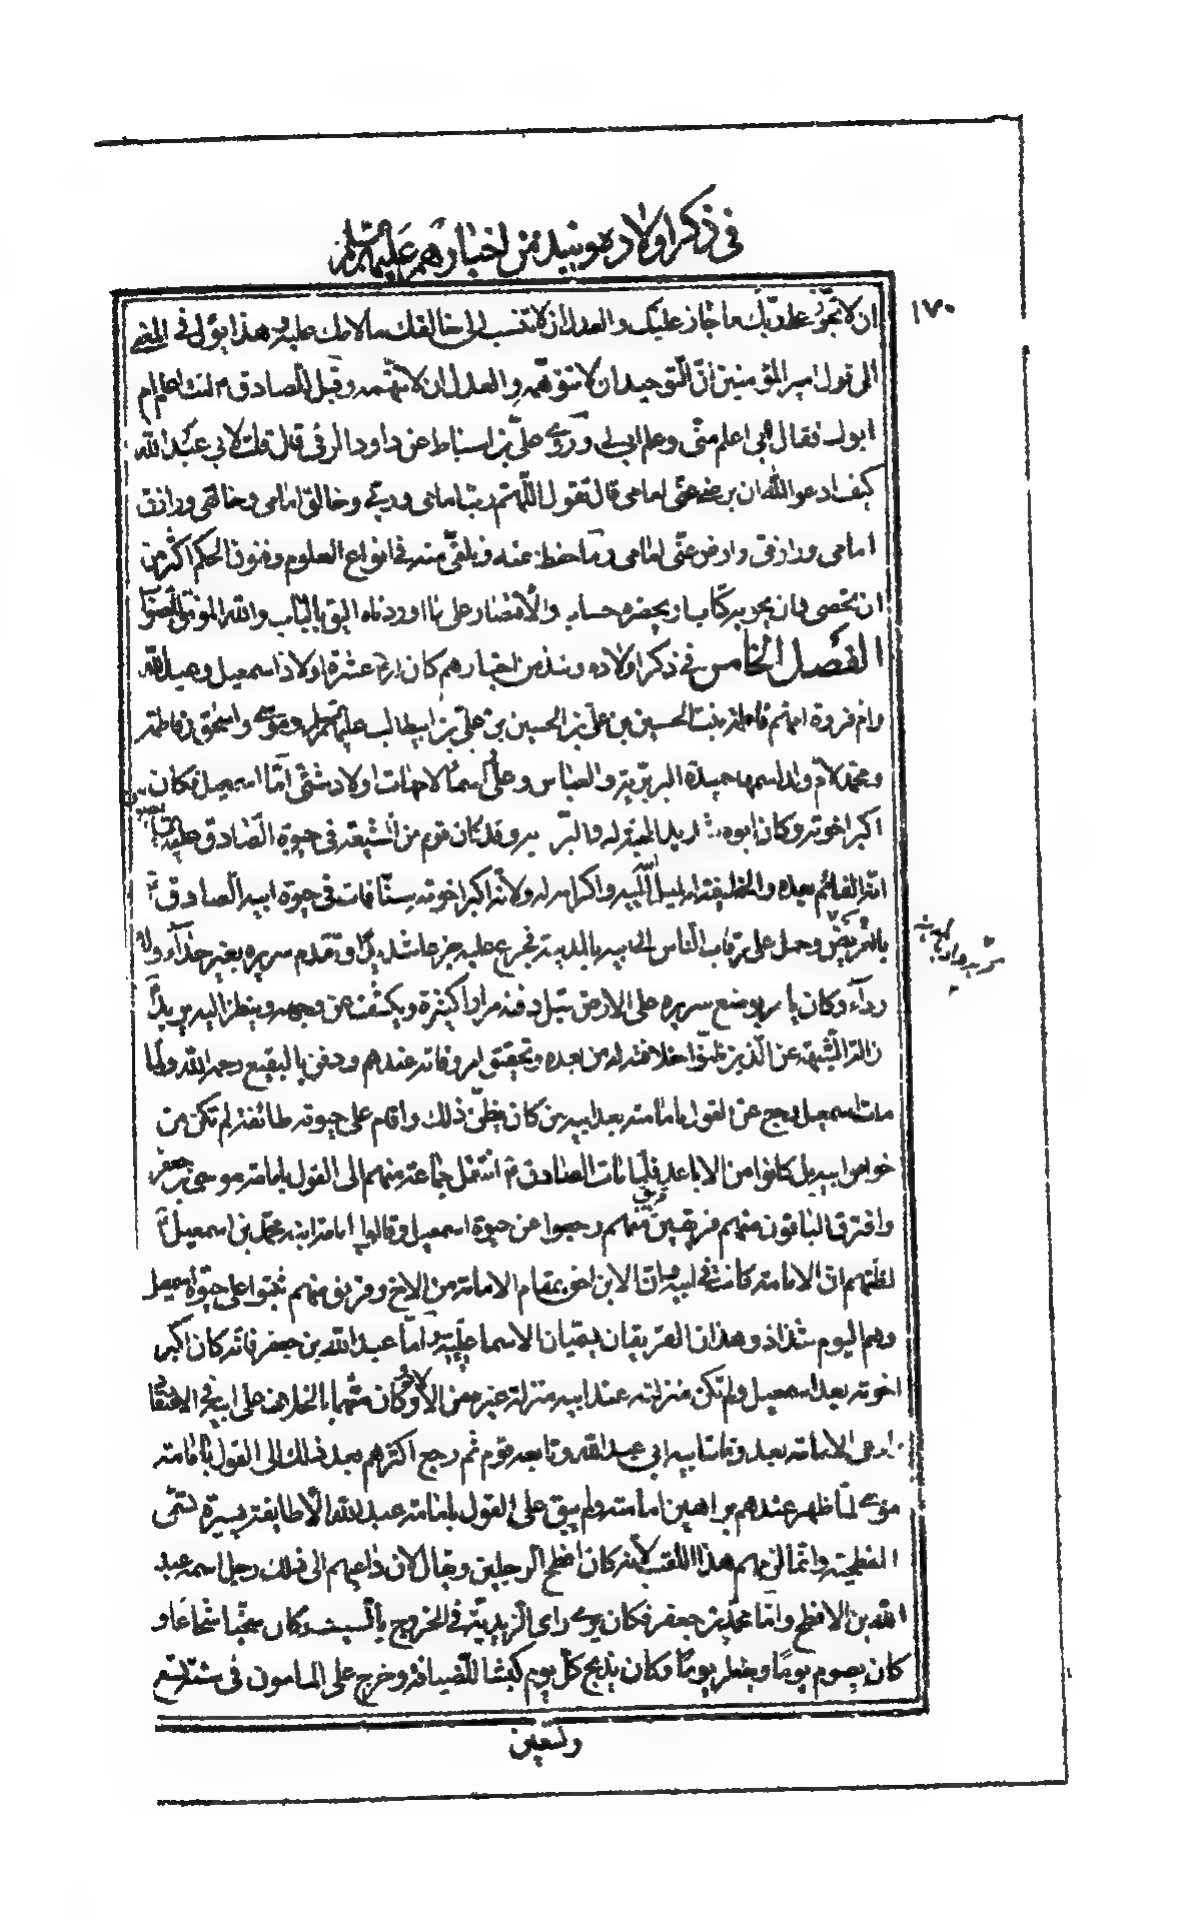 في ذكر اولاده ونبذ من اخبارهم عليهم السلام
١٧٠
ان لا تجوز على ربك ما جاز عليك والعدل ان لا تنسب الى خالقك ما لامك عليه وهذا يؤل في المعنى
الى قول امير المؤمنين ان التوحيد ان لا تتوهمه والعدل ان لا تتهمه وقيل للصادق انت اعلم ام
ابوك فقال ابي اعلم مني وعلم ابي لي وروى علي بن اسباط عن داود الرقي قال قلت لابي عبد الله
كيف ادعو الله ان يرضي عني امامي قال تقول اللهم رب امامي وربي وخالق امامي وخالقي ورازق
امامي ورازقي وارض عني امامي وما حفظ عنه ونلقي منه في انواع العلوم وفنون الحكم اكثر من
ان تحصى بان يحويه كتاب او يحصره حساب والاقتصار على ما اوردناه اليق بالباب والله الموفق للصواب
الفصل الخامس في ذكر اولاده ونبذ من اخبارهم كان له عشرة اولاد اسمعيل وعبد الله
وام فروة امهم فاطمة بنت الحسين بن علي بن الحسين بن علي بن ابيطالب عليهم السلام وموسى واسحق وفاطمة
ومحمد لام ولد اسمها حميدة البربرية والعباس وعلي واسماء لامهات اولاد شتى اما اسمعيل فكان
اكبر اخوته وكان ابوه شديد المحبة له والبر به وقد كان قوم من الشيعة في حيوة الصادق
انه القائم بعده والخليفة له لميل ابيه واكرامه له ولانه اكبر اخوته سنا فمات في حيوة ابيه الصادق
بالعريض وحمل على رقاب الناس الى ابيه بالمدينة فجزع عليه جزعا شديدا وتقدم سريره بغير حذاء ولا
رداء وكان يأمر بوضع سريره على الارض قبل دفنه مرارا كثيرة ويكشف عن وجهه وينظر اليه يريد
ازالة الشبهة عن الذين ظنوا خلافته له من بعده وتحقيق امر وفاته عندهم ودفن بالبقيع رحمه الله ولما
مات اسمعيل رجع عن القول بامامته بعد ابيه من كان يظن ذلك واقام على حيوته طائفة لم تكن من
خواص ابيه بل كانوا من الاباعد فلما مات الصادق انتقل جماعة منهم الى القول بامامة موسى بن جعفر
وافترق الباقون منهم فريقين فريق منهم رجعوا عن حيوة اسمعيل وقالوا بامامة ابنه محمد بن اسمعيل
لظنهم ان الامامة كانت في ابيه وان الابن احق بمقام الامامة من الاخ وفريق منهم ثبتوا على حيوة اسمعيل
وهم اليوم شذاذ وهذان الفريقان يسميان الاسماعيلية واما عبد الله بن جعفر فانه كان اكبر
اخوته بعد اسمعيل ولم تكن منزلته عند ابيه منزلة غيره من الاولاد وكان متهما بالخلاف على ابيه في الاعتقاد
ادعى الامامة بعد وفات ابيه ابي عبد الله وتابعه قوم ثم رجع اكثرهم بعد ذلك الى القول بامامة
موسى لما ظهر عندهم براهين امامته ولم يبق على القول بامامة عبد الله الا طايفة يسيرة تسمى
الفطحية وانما لزمهم هذا اللقب لانه كان افطح الرجلين ويقال لان داعيهم الى ذلك رجل اسمه عبد
الله بن الافطح واما محمد بن جعفر فكان يرى راى الزيدية في الخروج بالسيف وكان سخيا شجاعا و
كان يصوم يوما ويفطر يوما وكان يذبح كل يوم كبشا للضيافة وخرج على المامون في سنة تسع
وتسعين